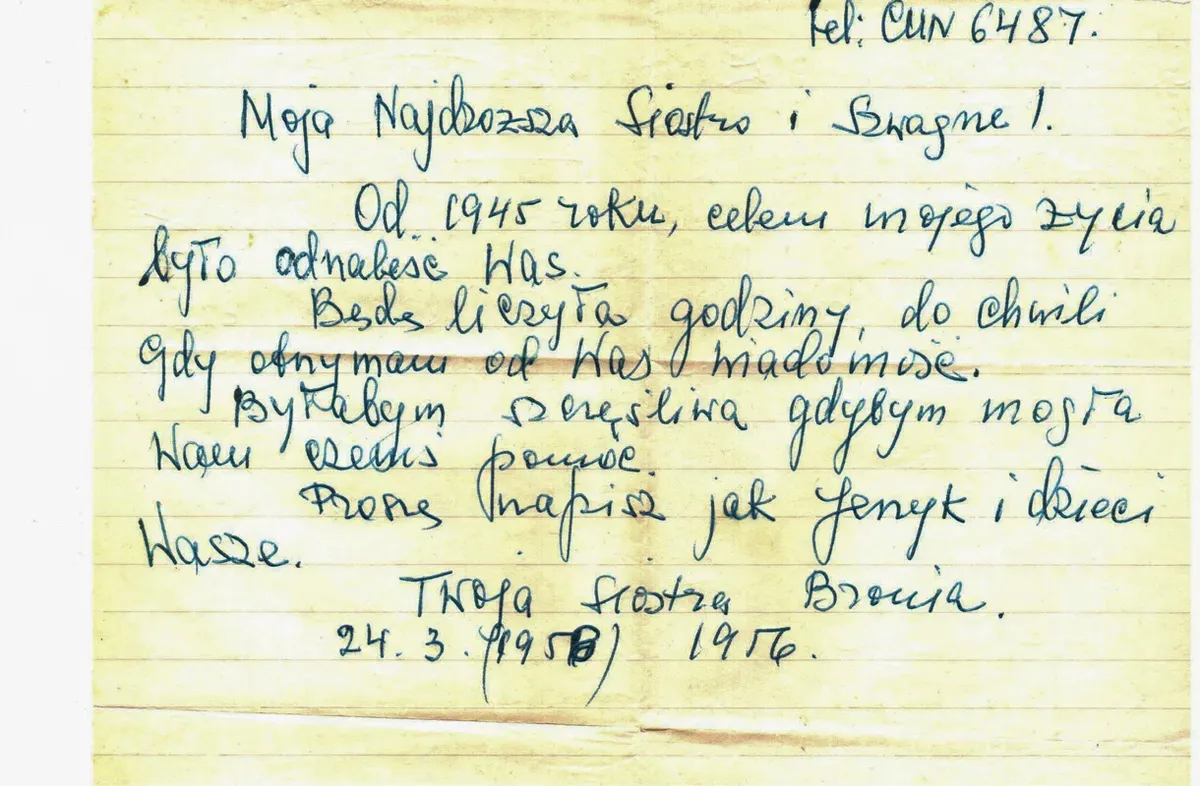 tel: CUN 6487.
Moja Najdrozsza Siostro i Szwagrze!.
Od 1945 roku, celem mojego życia
było odnaleść Was.
Będę liczyła godziny, do chwili
gdy otrzymam od Was wiadomość.
Byłabym szczęśliwa gdybym mogła
Wam czemś pomóc.
Proszę napisz jak Jerzyk i dzieci
Wasze.
Twoja Siostra Bronia.
24. 3. (1956) 1956.